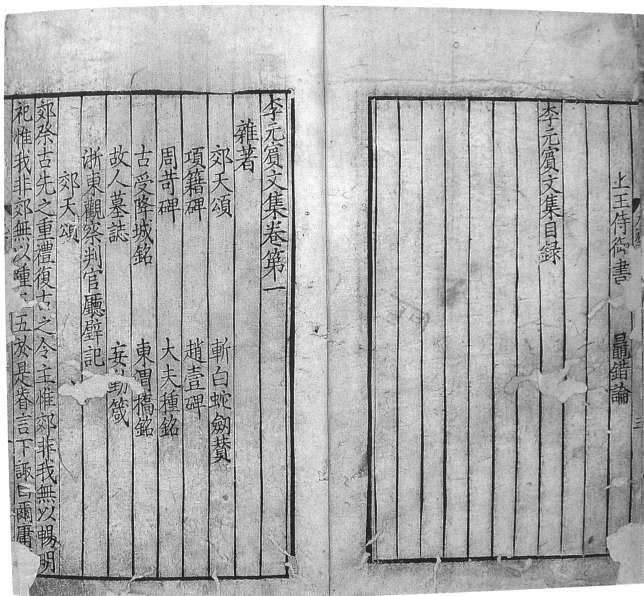 上王侍御書 鼂錯論
李元賓文集目録
李元賓文集卷第一
雜著
郊天頌 斬白蛇劒賛
項籍碑 趙壹碑
周苛碑 大夫種銘
古受降城銘 東渭橋銘
故人墓誌 妄動箴
浙東觀察判官廳壁記
郊天頌
郊祭古先之重禮復古之令主惟郊非我無以暢明
祀惟我非郊無以踵五於是眷言下諏曰爾庸